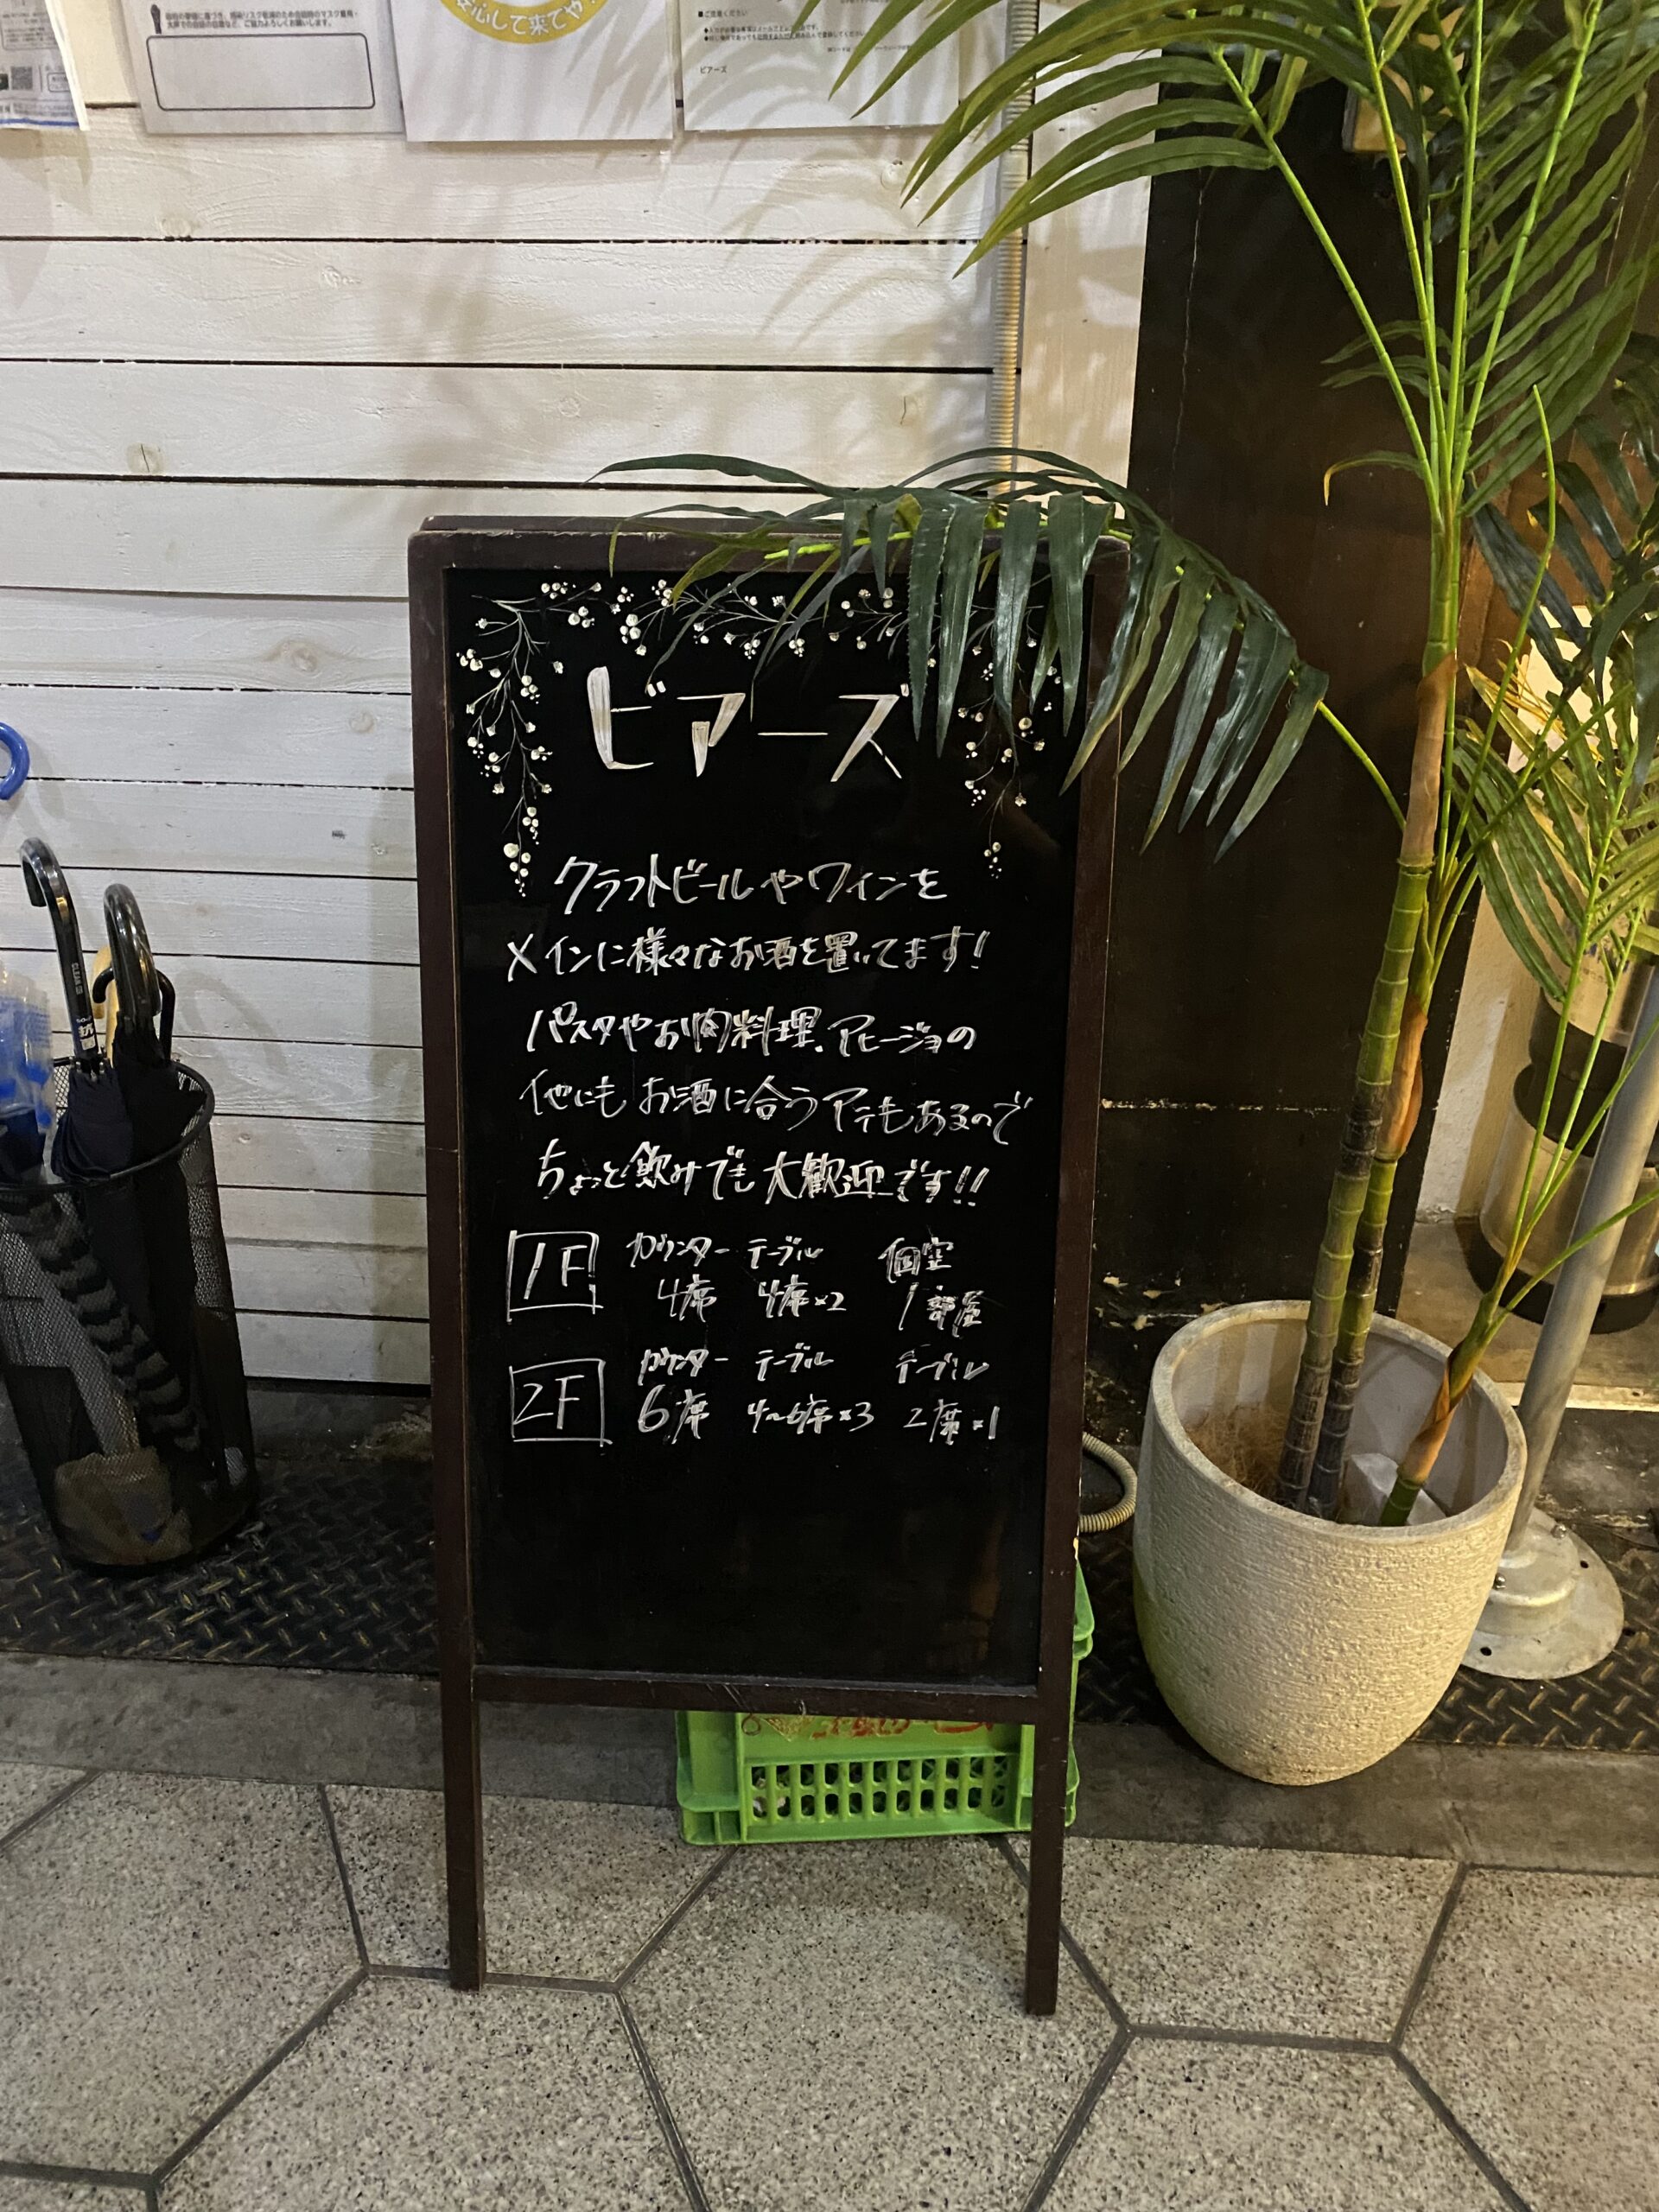 安心して来てや!
■ご注意ください
ピアーズ
ビアーズ
クラフトビールやワインを
メインに様々なお酒を置いてます!
パスタやお肉料理、アヒージョの
他にもお酒に合うアテもあるので
ちょっと飲みでも大歓迎です!!
1F カウンター テーブル 個室
4席 4席×2 1部屋
2F カウンター テーブル テーブル
6席 4~6席×3 2席×1